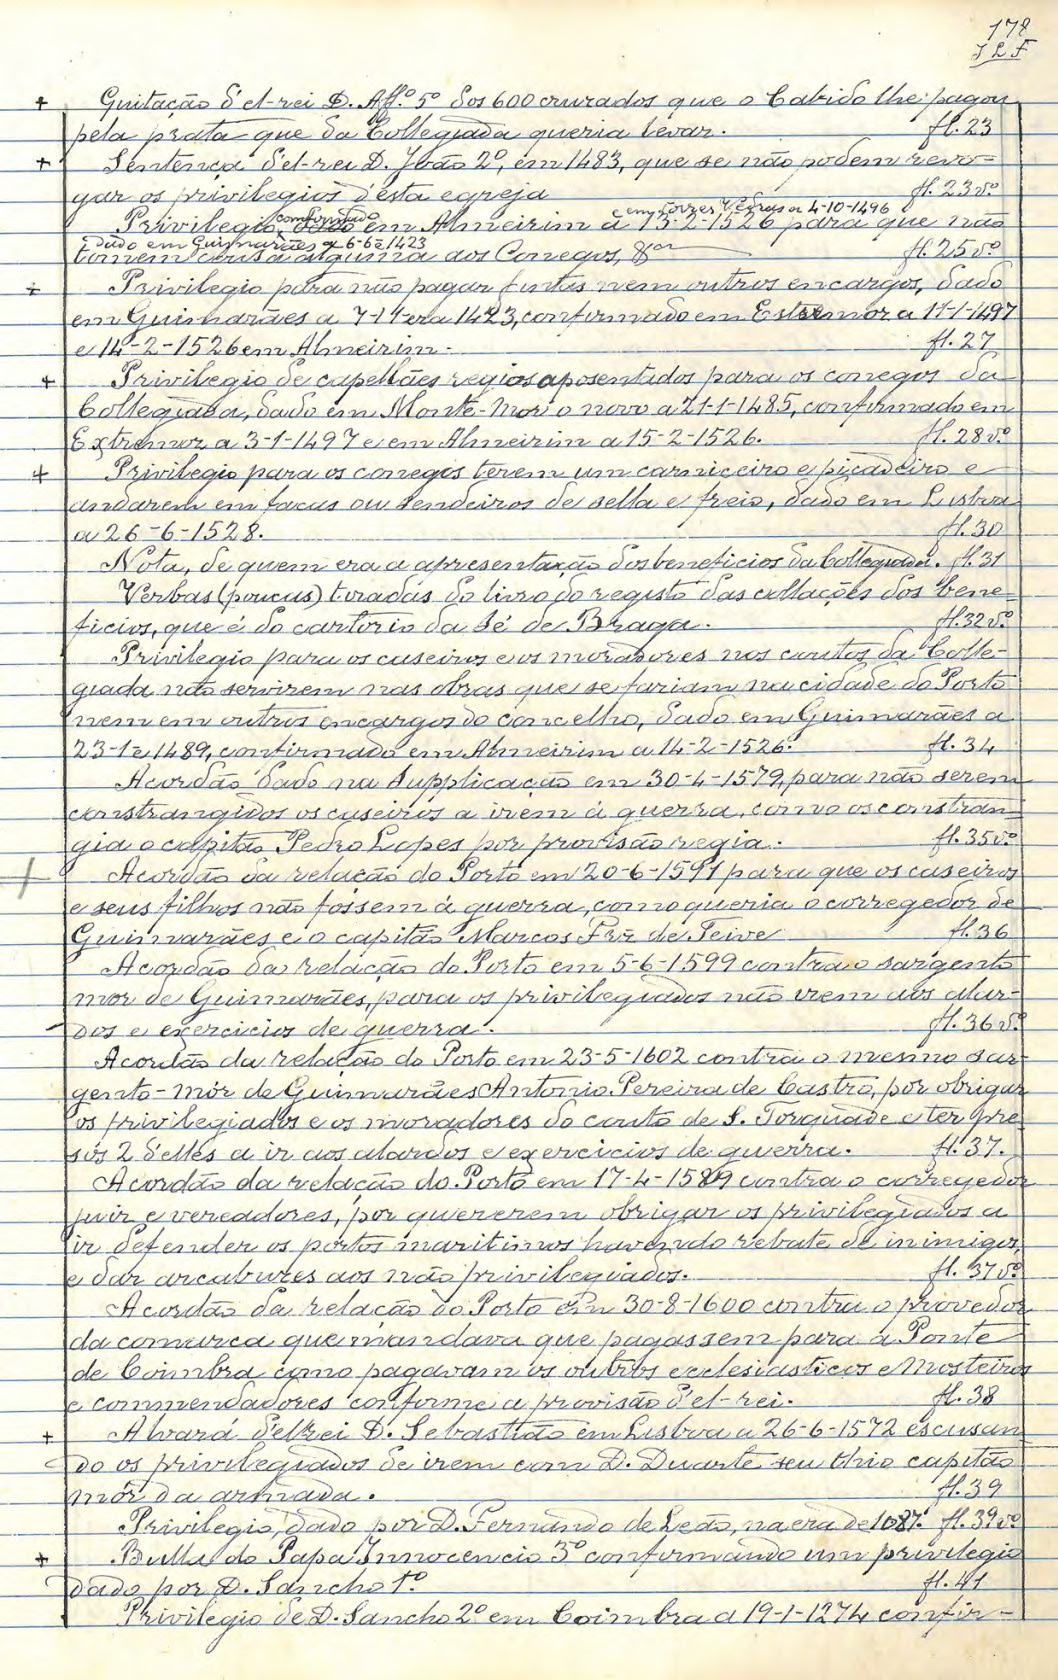 178
J L F
+ Quitação d'el-rei D. Aff.º 5º dos 600 cruzados que o Cabido lhe pagou
pela prata que da Collegiada queria levar. fl. 23
+ Sentença d'el-rei D. João 2º, em 1483, que se não podem revo-
gar os privilegios d'esta egreja fl. 23 vº
em Torres Vedras a 4-10-1496
confirmado
Privilegio, dado em Almeirim a 15-2-1526 para que não
dado em Guimarães a 6-6-1423
tomem cousa alguma aos Conegos, &ª fl. 25 vº
+ Privilegio para não pagar fintas nem outros encargos, dado
em Guimarães a 7-11-era 1423, confirmado em Estremor a 11-1-1497
e 14-2-1526 em Almeirim. fl. 27
+ Privilegio de capellães regios aposentados para os conegos da
Collegiada, dado em Monte-Mor o novo a 21-1-1485, confirmado em
Extremoz a 3-1-1497 e em Almeirim a 15-2-1526. fl. 28 vº
+ Privilegio para os conegos terem um carniceiro e picadeiro e
andarem em facas ou sendeiros de sella e freio, dado em Lisboa
a 26-6-1528. fl. 30
Nota, de quem era a apresentação dos beneficios da Collegiada. fl. 31
Verbas (poucas) tiradas do livro do registo das collações dos bene
ficios, que é do cartorio da Sé de Braga. fl. 32 vº
Privilegio para os caseiros e os moradores nos coutos da Colle-
giada não servirem nas obras que se fariam na cidade do Porto
nem em outros encargos do concelho, dado em Guimarães a
23-1-1489, confirmado em Almeirim a 14-2-1526. fl. 34
Acordão dado na Supplicação em 30-4-1579, para não serem
constrangidos os caseiros a irem á guerra, como os constran-
gia o capitão Pedro Lopes por provisão regia. fl. 35 vº
+ Acordão da relação do Porto em 20-6-1591 para que os caseiros
e seus filhos não fossem á guerra, como queria o corregedor de
Guimarães e o capitão Marcos Frz de Teive fl. 36
Acordão da relação do Porto em 5-6-1599 contra o sargento
mor de Guimarães, para os privilegiados não irem aos alar-
dos e exercicios de guerra. fl. 36 vº
Acordão da relação do Porto em 23-5-1602 contra o mesmo sar-
gento-mór de Guimarães Antonio Pereira de Castro, por obrigar
os privilegiados e os moradores do couto de S. Torquade e ter pre
sos 2 d'elles a ir aos alardos e exercicios de guerra. fl. 37.
Acordão da relação do Porto em 17-4-1589 contra o corregedor
juiz e vereadores, por quererem obrigar os privilegiados a
ir defender os portos maritimos havendo rebate de inimigos,
e dar arcabuzes aos não privilegiados. fl. 37 vº
Acordão da relação do Porto em 30-8-1600 contra o provedor
da comarca que mandava que pagassem para a Ponte
de Coimbra como pagavam os outros ecclesiasticos e Mosteiros
e commendadores conforme a provisão d'el-rei. fl. 38
+ Alvará d'el-rei D. Sebastião em Lisboa a 26-6-1572 escusan
do os privilegiados de irem com D. Duarte seu thio capitão
mór da armada. fl. 39
Privilegio, dado por D. Fernando de Leão, na era de 1087. fl. 39 vº
+ Bulla do Papa Innocencio 3º confirmando um privilegio
dado por D. Sancho 1º fl. 41
Privilegio de D. Sancho 2º em Coimbra a 19-1-1274 confir-